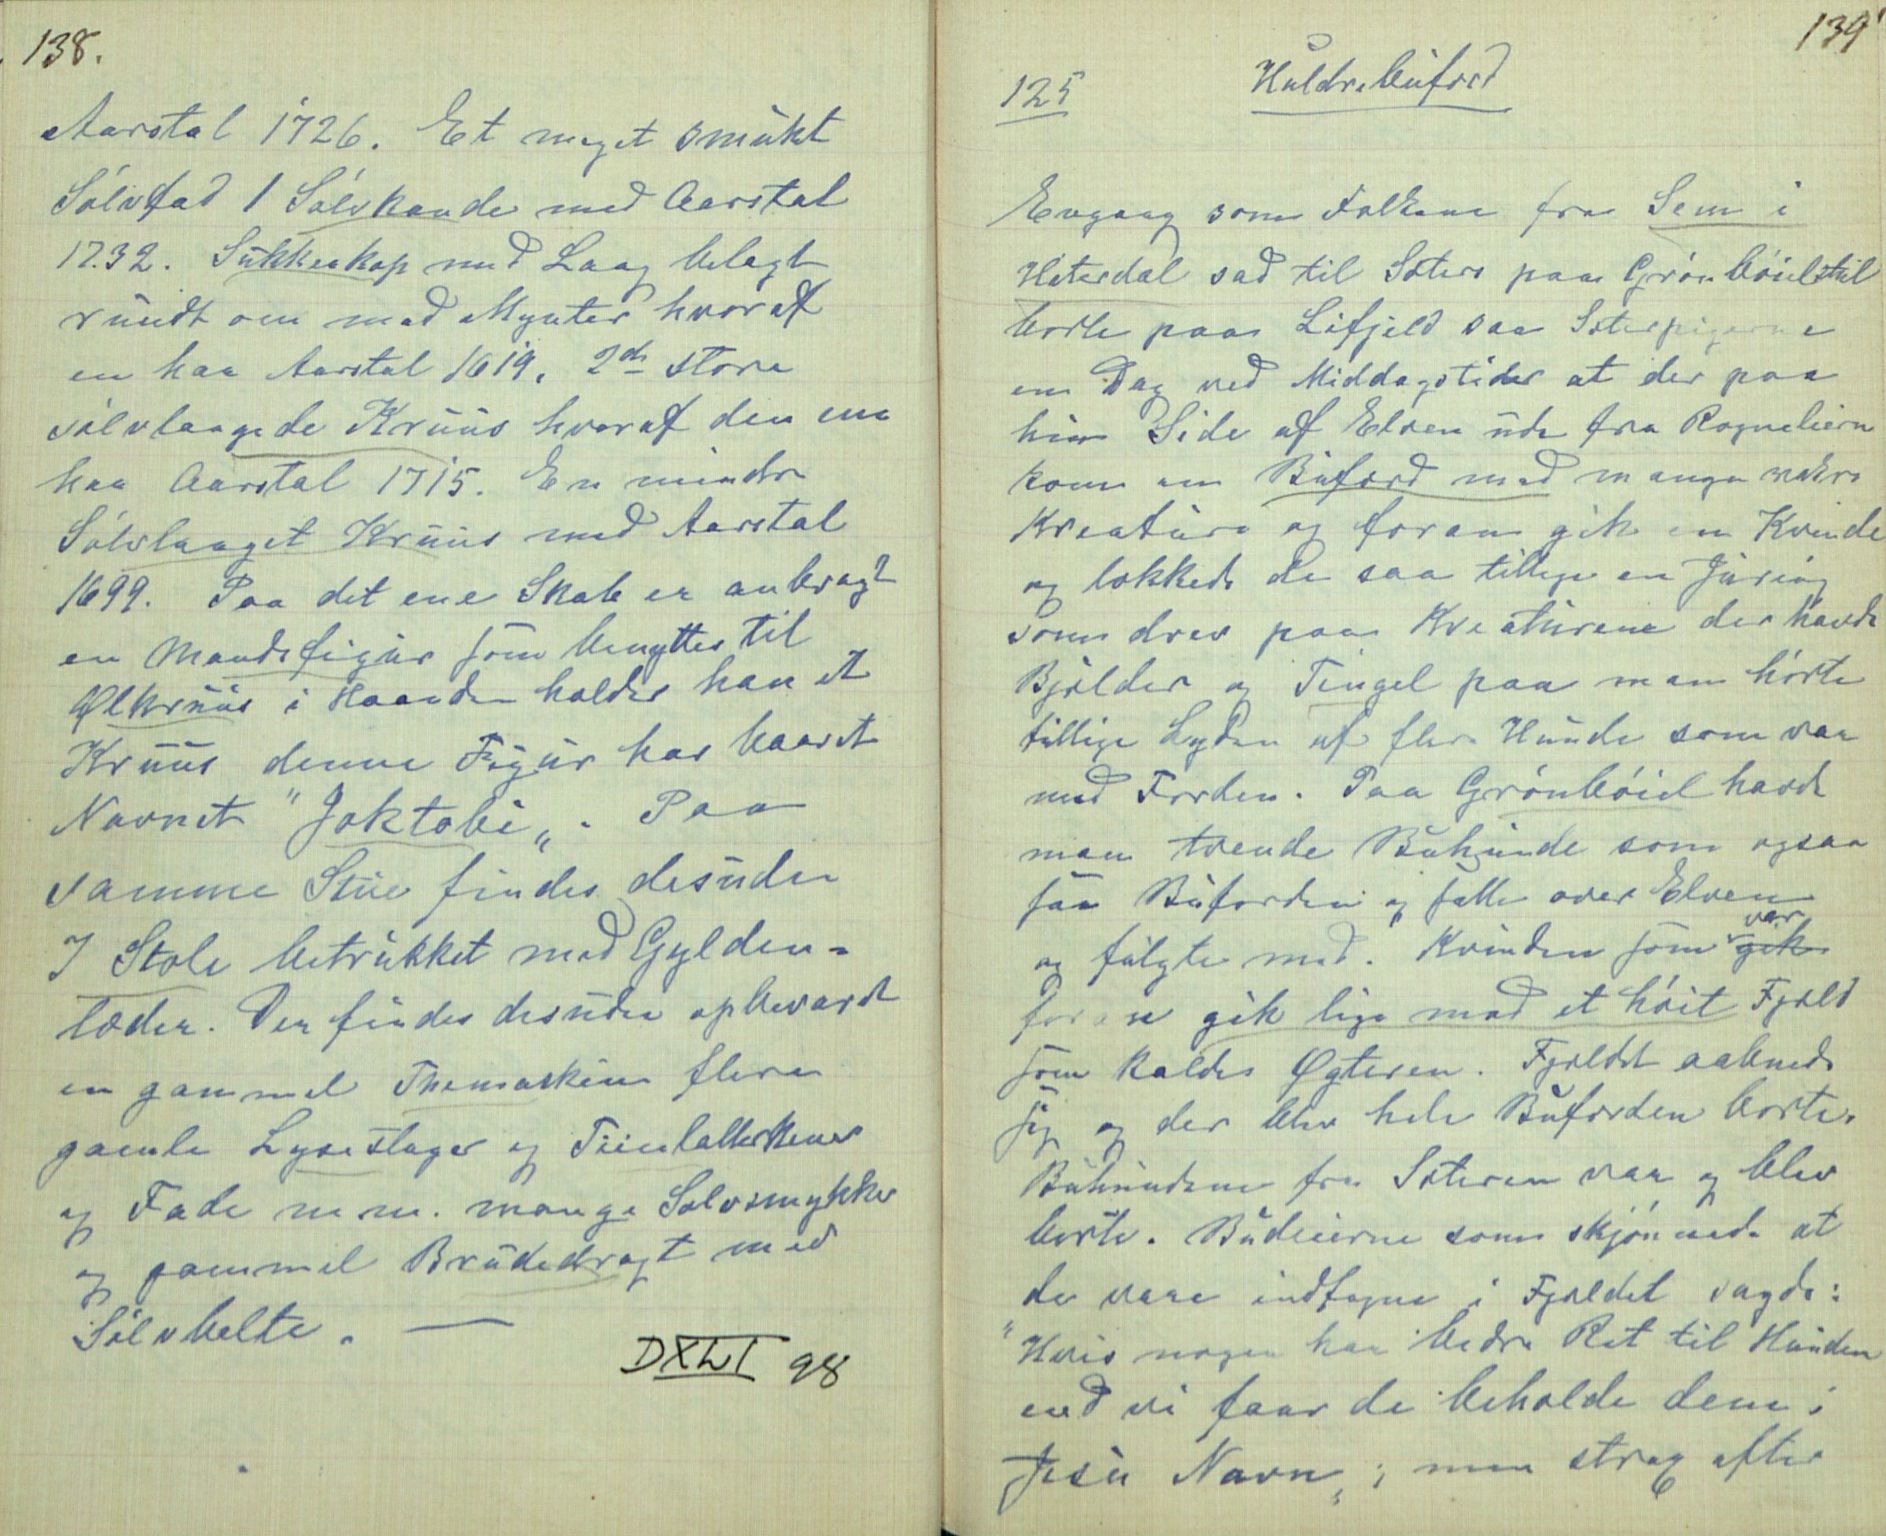 138.
Aarstal 1726. Et meget smukt
Sølvfad 1 Sølvkande med Aarstal
1732. Sukkerkop med Laag belagt
rundt om med Mynter hvoraf
en har Aarstal 1619. 2de store
sølvlaagede Kruus hvoraf den ene
har Aarstal 1715. En mindre
Sølvlaaget Kruus med Aarstal
1699. Paa det ene Skab er anbragt
en Mandsfigur som benyttes til
Ølkruus i Haanden holder han et
Kruus denne Figur har baaret
Navnet "Joktobi„. Paa
samme Stue findes desuden
7 Stole betrukket med Gylden-
læder. Der findes desuden opbevaret
en gammel Themaskine flere
gamle Lysestager og Tintallerkener
og Fade m.m. mange Sølvsmykker
og gammel Brudedragt med
Sølvbelte. —
DXLI 98
139
125 Huldrebuferd
Engang som Folkene fra Sem i
Hiterdal sad til Sæters paa Grønbøielstul
borte paa Lifjeld saa Sæterpigerne
en Dag ved Middagstider at der paa
hin Side af Elven ude fra Rogneliern
kom en Buferd med mange vakre
Kreature og foran gik en Kvinde
og lokkede de saa tillige en Jüring
som drev paa Kreaturene der havde
Bjelder og Tingel paa man hørte
tillige Lyden af flere Hunde som var
med Ferden. Paa Grønbøiel havde
man trende Buhunde som ogsaa
saa Buferden og satte over Elven
og fulgte med. Kvinden som gik var
foran gik lige mod et høit Fjeld
som kaldes Øgteren. Fjeldet aabnede
sig og der blev hele Buferden borte.
Buhundene fra Sæteren var og blev
borte. Budeierne som skjønnede at
de vare indtagne i Fjeldet sagde:
"Hvis nogen har bedre Ret til Hunden
end vi faar de beholde dem i
Jesu Navn„; men strax efter